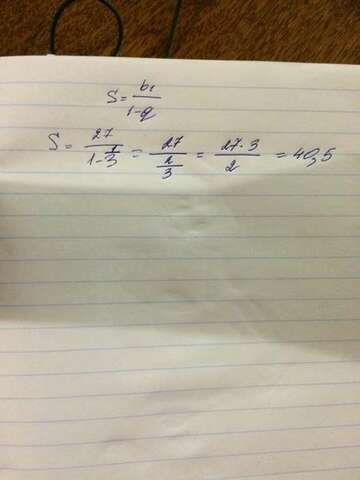 S = b₁/(1-q)
S = 27/(1-1/3) = 27/(2/3) = 27·3/2 = 40,5